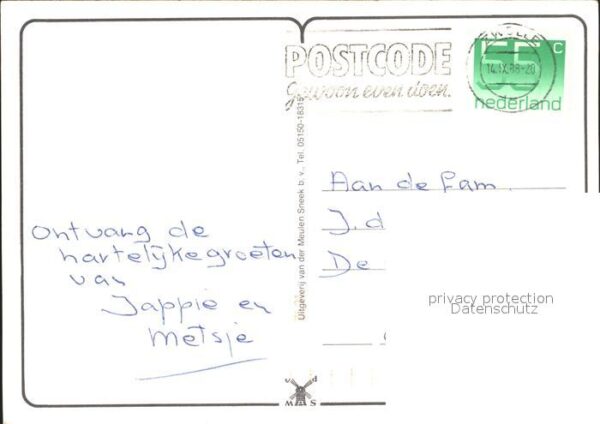 POSTCODE
gewoon even doen.
ZWOLLE
14.IX.88-20
55 c
nederland
Uitgeverij van der Meulen Sneek b.v., Tel. 05150-18315
Ontvang de
hartelijke groeten
van
Jappie en
Metsje
Aan de Fam.
J. d
De
privacy protection
Datenschutz